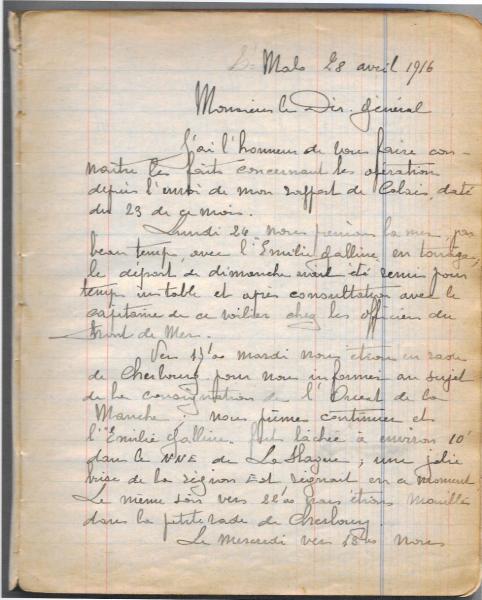 St Malo 28 avril 1916
Monsieur le Dir. général
J'ai l'honneur de vous faire con-
naître les faits concernant les opération
depuis l'envoi de mon rapport de Calais, daté
du 23 de ce mois.
Lundi 24 nous prenions la mer, par
beau temp, avec l'Emilie Galline en touage,
le départ de dimanche avait été remis pour
temp instable et après consultation avec le
capitaine de ce voilier chez les officiers du
front de Mer.
Vers mardi nous étions en rade
de Cherbourg pour nous informer au sujet
de la consignation de l'Ouest de la
Manche, nous pûmes continuer et
l'Emilie Galline fut lâchée à environ 10'
dans le NNE de La Hague; une jolie
brise de la région Est régnait en ce moment
Le même soir vers nous étions mouillé
dans la petite rade de Cherbourg.
Le mercredi vers nous